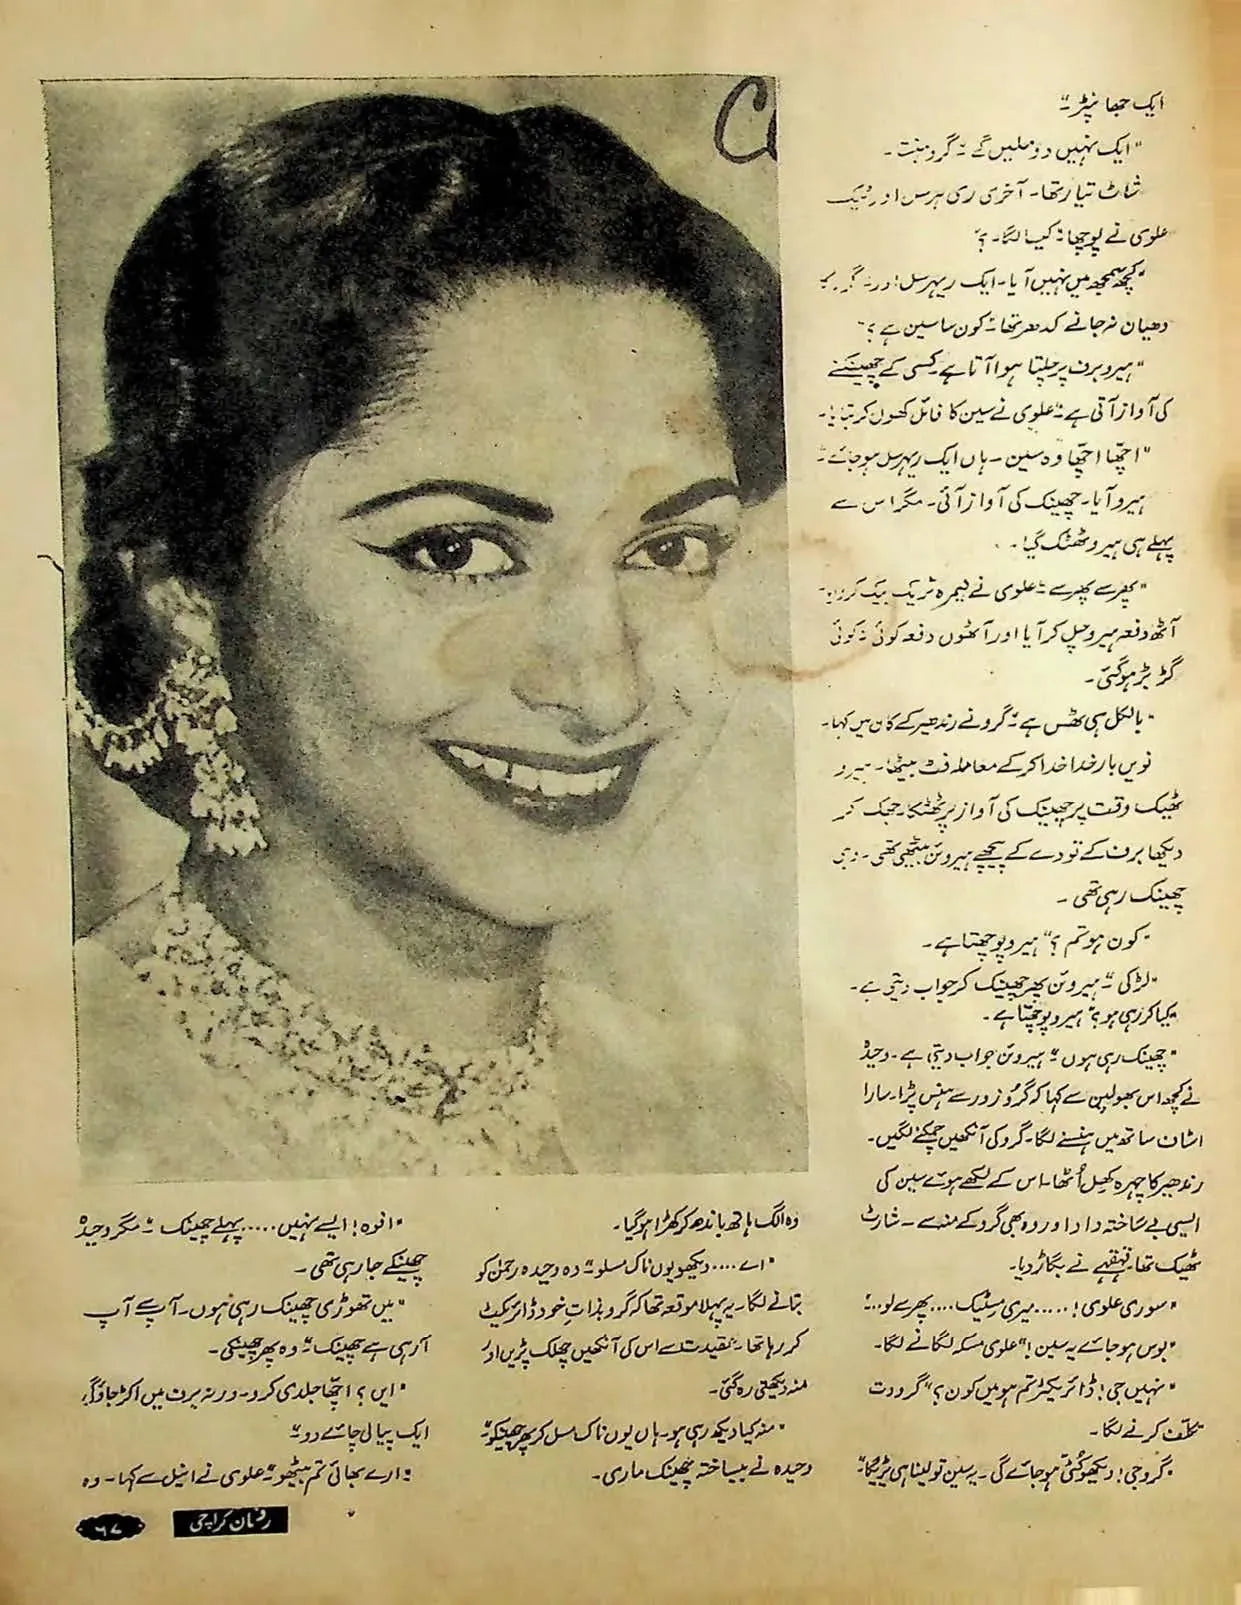 ایک جھا نپڑ۔"
"ایک نہیں دو ملیں گے۔ گرو منت۔
شاٹ تیار تھا۔ آخری ری ہرسل اور ٹیک
علوی نے پوچھا: کیسا لگا۔؟
"کچھ سمجھ میں نہیں آیا۔ ایک ریہرسل اور۔
دھیان نہ جانے کدھر تھا۔ کون سا سین ہے؟
"ہیرو برف پر چلتا ہوا آتا ہے۔ کسی کے چھینکنے
کی آواز آتی ہے۔" علوی نے سین کا فائل کھول کر بتایا۔
"اچھا اچھا وہ سین۔ ہاں ایک ریہرسل ہو جائے۔"
ہیرو آیا۔ چھینک کی آواز آئی۔ مگر اس سے
پہلے ہی ہیرو ٹھٹک گیا۔
"پھر سے پھر سے۔" علوی نے کیمرہ ٹریک بیک کروایا۔
آٹھ دفعہ ہیرو چل کر آیا اور آٹھوں دفعہ کوئی نہ کوئی
گڑبڑ ہو گئی۔
"بالکل ہی ٹھس ہے" گرو نے رندھیر کے کان میں کہا۔
نویں بار خدا خدا کر کے معاملہ فٹ بیٹھا۔ ہیرو
ٹھیک وقت پر چھینک کی آواز پر ٹھٹکا۔ جھک کر
دیکھا برف کے تودے کے پیچھے ہیروئن بیٹھی تھی۔ وہی
چھینک رہی تھی۔
"کون ہو تم؟" ہیرو پوچھتا ہے۔
"لڑکی۔" ہیروئن پھر چھینک کر جواب دیتی ہے۔
"کیا کر رہی ہو؟" ہیرو پوچھتا ہے۔
"چھینک رہی ہوں۔" ہیروئن جواب دیتی ہے۔ وحیدہ
نے کچھ اس بھولپن سے کہا کہ گرو زور سے ہنس پڑا۔ سارا
اسٹاف ساتھ میں ہنسنے لگا۔ گرو کی آنکھیں چمکنے لگیں۔
رندھیر کا چہرہ کھل اُٹھا۔ اس کے لکھے ہوئے سین کی
ایسی بے ساختہ داد اور وہ بھی گرو کے منہ سے۔ شارٹ
ٹھیک تھا۔ قہقہے نے بگاڑ دیا۔
"سوری علوی! ..... میری مسٹیک .... پھر سے لو..."
"بوس ہو جائے یہ سین!" علوی مسکہ لگانے لگا۔
"نہیں جی! ڈائریکٹر تم ہو میں کون؟" گرودت
تکلف کرنے لگا۔
"گرو جی! دیکھو کٹی ہو جائے گی۔ یہ سین تو لینا ہی پڑیگا۔"
وہ الگ ہاتھ باندھ کر کھڑا ہو گیا۔
"اے .... دیکھو یوں ناک مسلو۔" وہ وحیدہ رحمٰن کو
بتانے لگا۔ یہ پہلا موقعہ تھا کہ گرو بذاتِ خود ڈائریکٹ
کر رہا تھا۔ عقیدت سے اس کی آنکھیں چھلک پڑیں اور
منہ دیکھتی رہ گئی۔
"منہ کیا دیکھ رہی ہو۔ ہاں یوں ناک مسل کر پھر چھینکو"
وحیدہ نے بیساختہ چھینک ماری۔
"افوہ! ایسے نہیں ..... پہلے چھینک۔" مگر وحیدہ
چھینکے جا رہی تھی۔
"میں تھوڑی چھینک رہی ہوں۔ آپ سے آپ
آ رہی ہے چھینک۔" وہ پھر چھینکی۔
"ایں؟ اچھا جلدی کرو۔ ورنہ برف میں اکڑ جاؤگی،
ایک پیالی چائے دو۔"
"ارے بھائی تم بیٹھو۔" علوی نے انیل سے کہا۔ وہ
رومان کراچی
۶۷